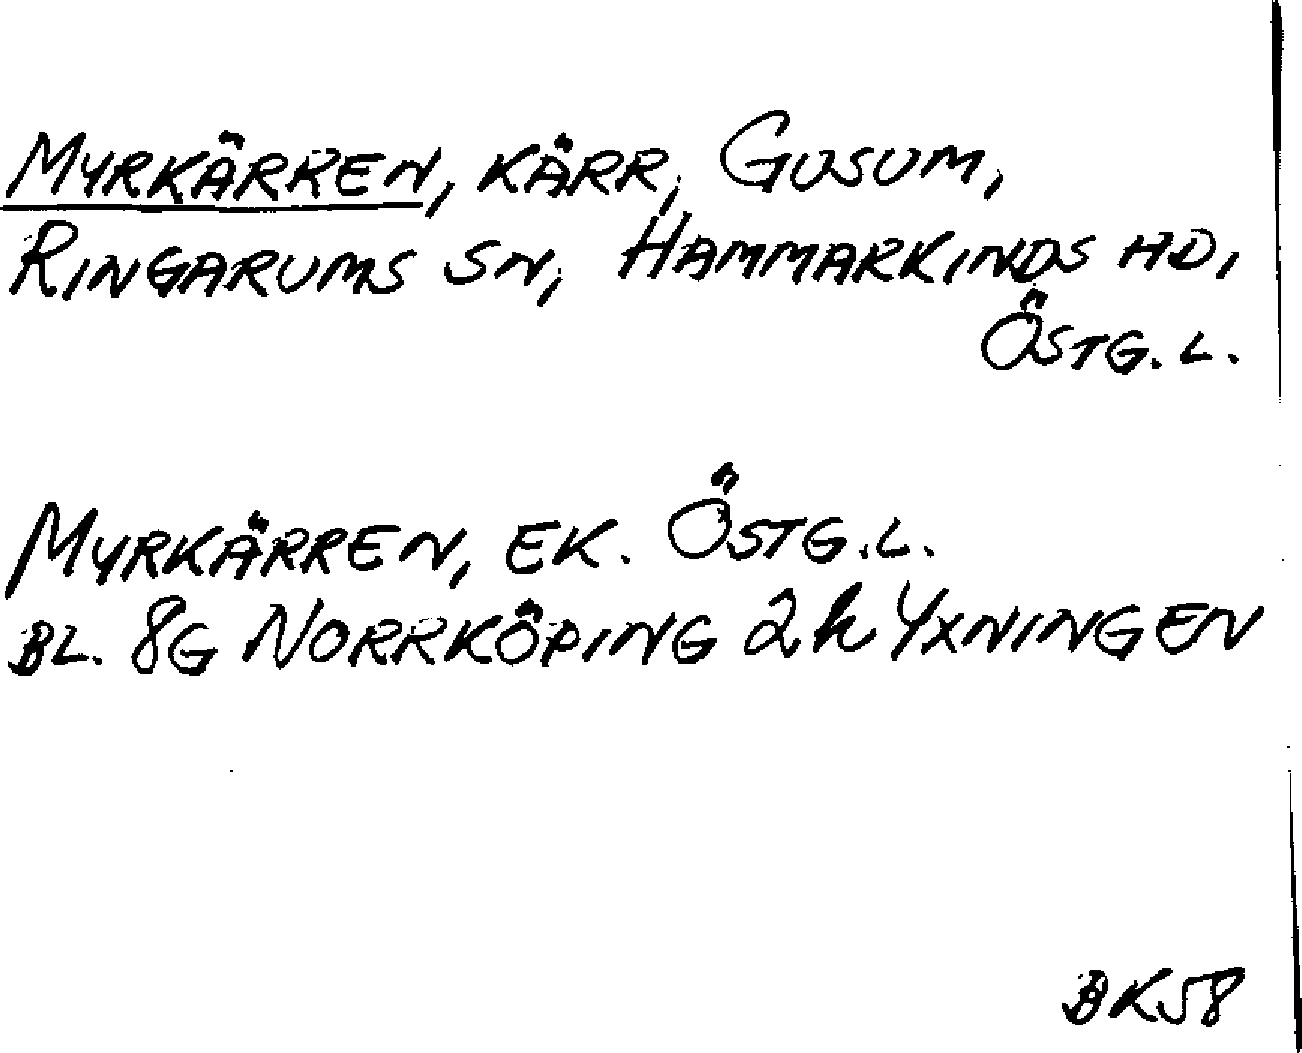 MYRKÄRREN, KÄRR, GUSUM,
RINGARUMS SN, HAMMARKINDS HD,
ÖSTG. L.
MYRKÄRREN, EK. ÖSTG. L.
BL. 8G NORRKÖPING 2h YXNINGEN
BK58